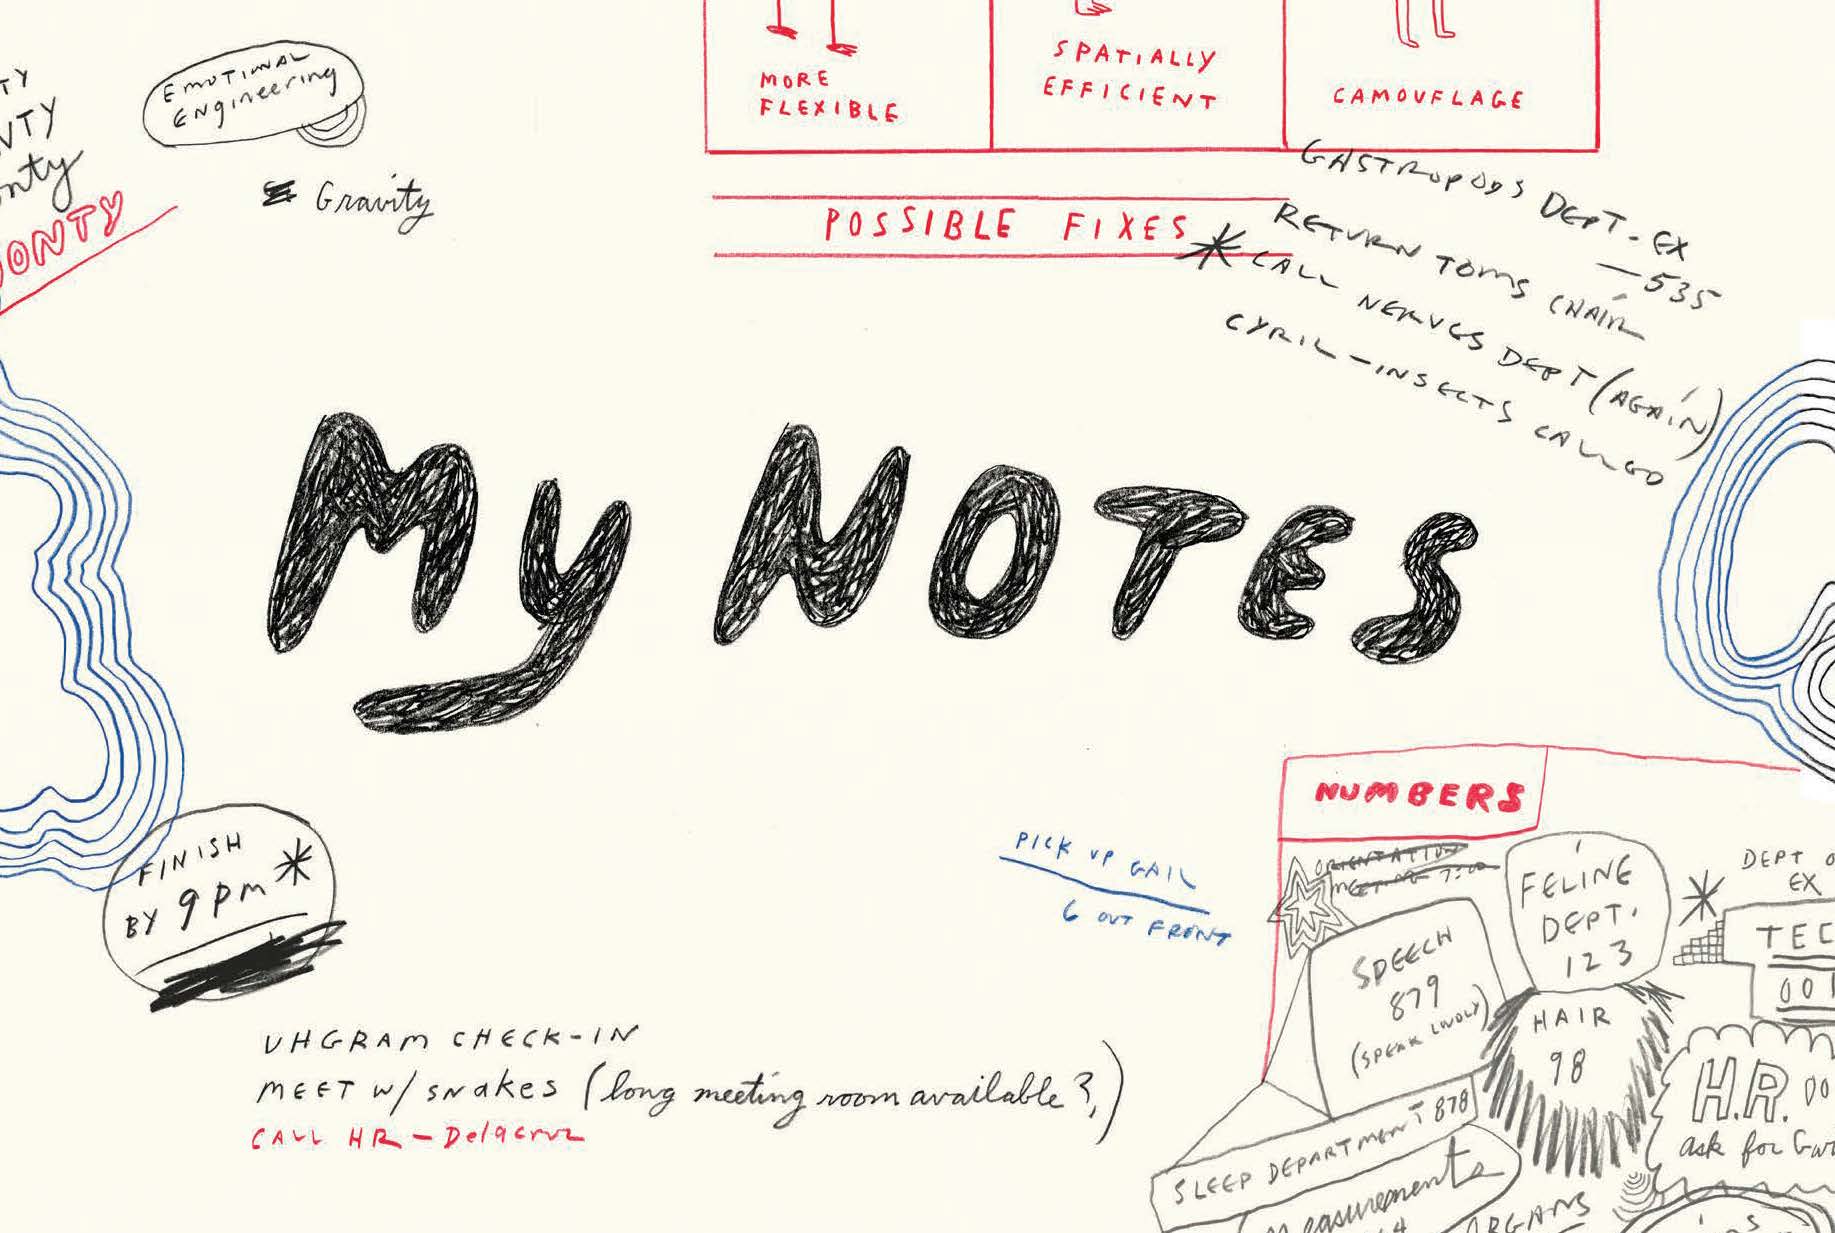 TY
UTY
onty
ONTY
EMOTIONAL
Engineering
Gravity
MORE
FLEXIBLE
SPATIALLY
EFFICIENT
CAMOUFLAGE
POSSIBLE FIXES
GASTROPODS DEPT. EX
—535
RETURN TOMS CHAIR
* CALL NERVES DEPT (AGAIN)
CYRIL-INSECTS CALLED
My NOTES
FINISH
BY 9pm *
PICK UP GAIL
6 OUT FRONT
UHGRAM CHECK-IN
MEET W/ SNAKES (long meeting room available?,)
CALL HR - Delacruz
NUMBERS
ORIENTATION
MEETING 7:00
SPEECH
879
(SPEAK LOUDLY)
FELINE
DEPT.
123
HAIR
98
* DEPT O
EX
TEC
001
H.R. DO
ask for Gw
SLEEP DEPARTMENT 878
Measurements
4
ORGANS